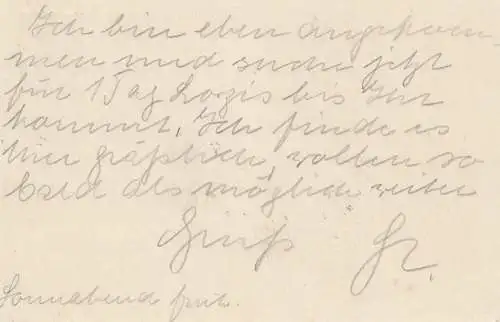 Ich bin eben angekom-
men und suche jetzt
für 1 Tag Logis bis Ihr
kommt. Ich finde es
hier gräßlich, wollen so
bald als möglich weiter
Gruß
Sonnabend früh.